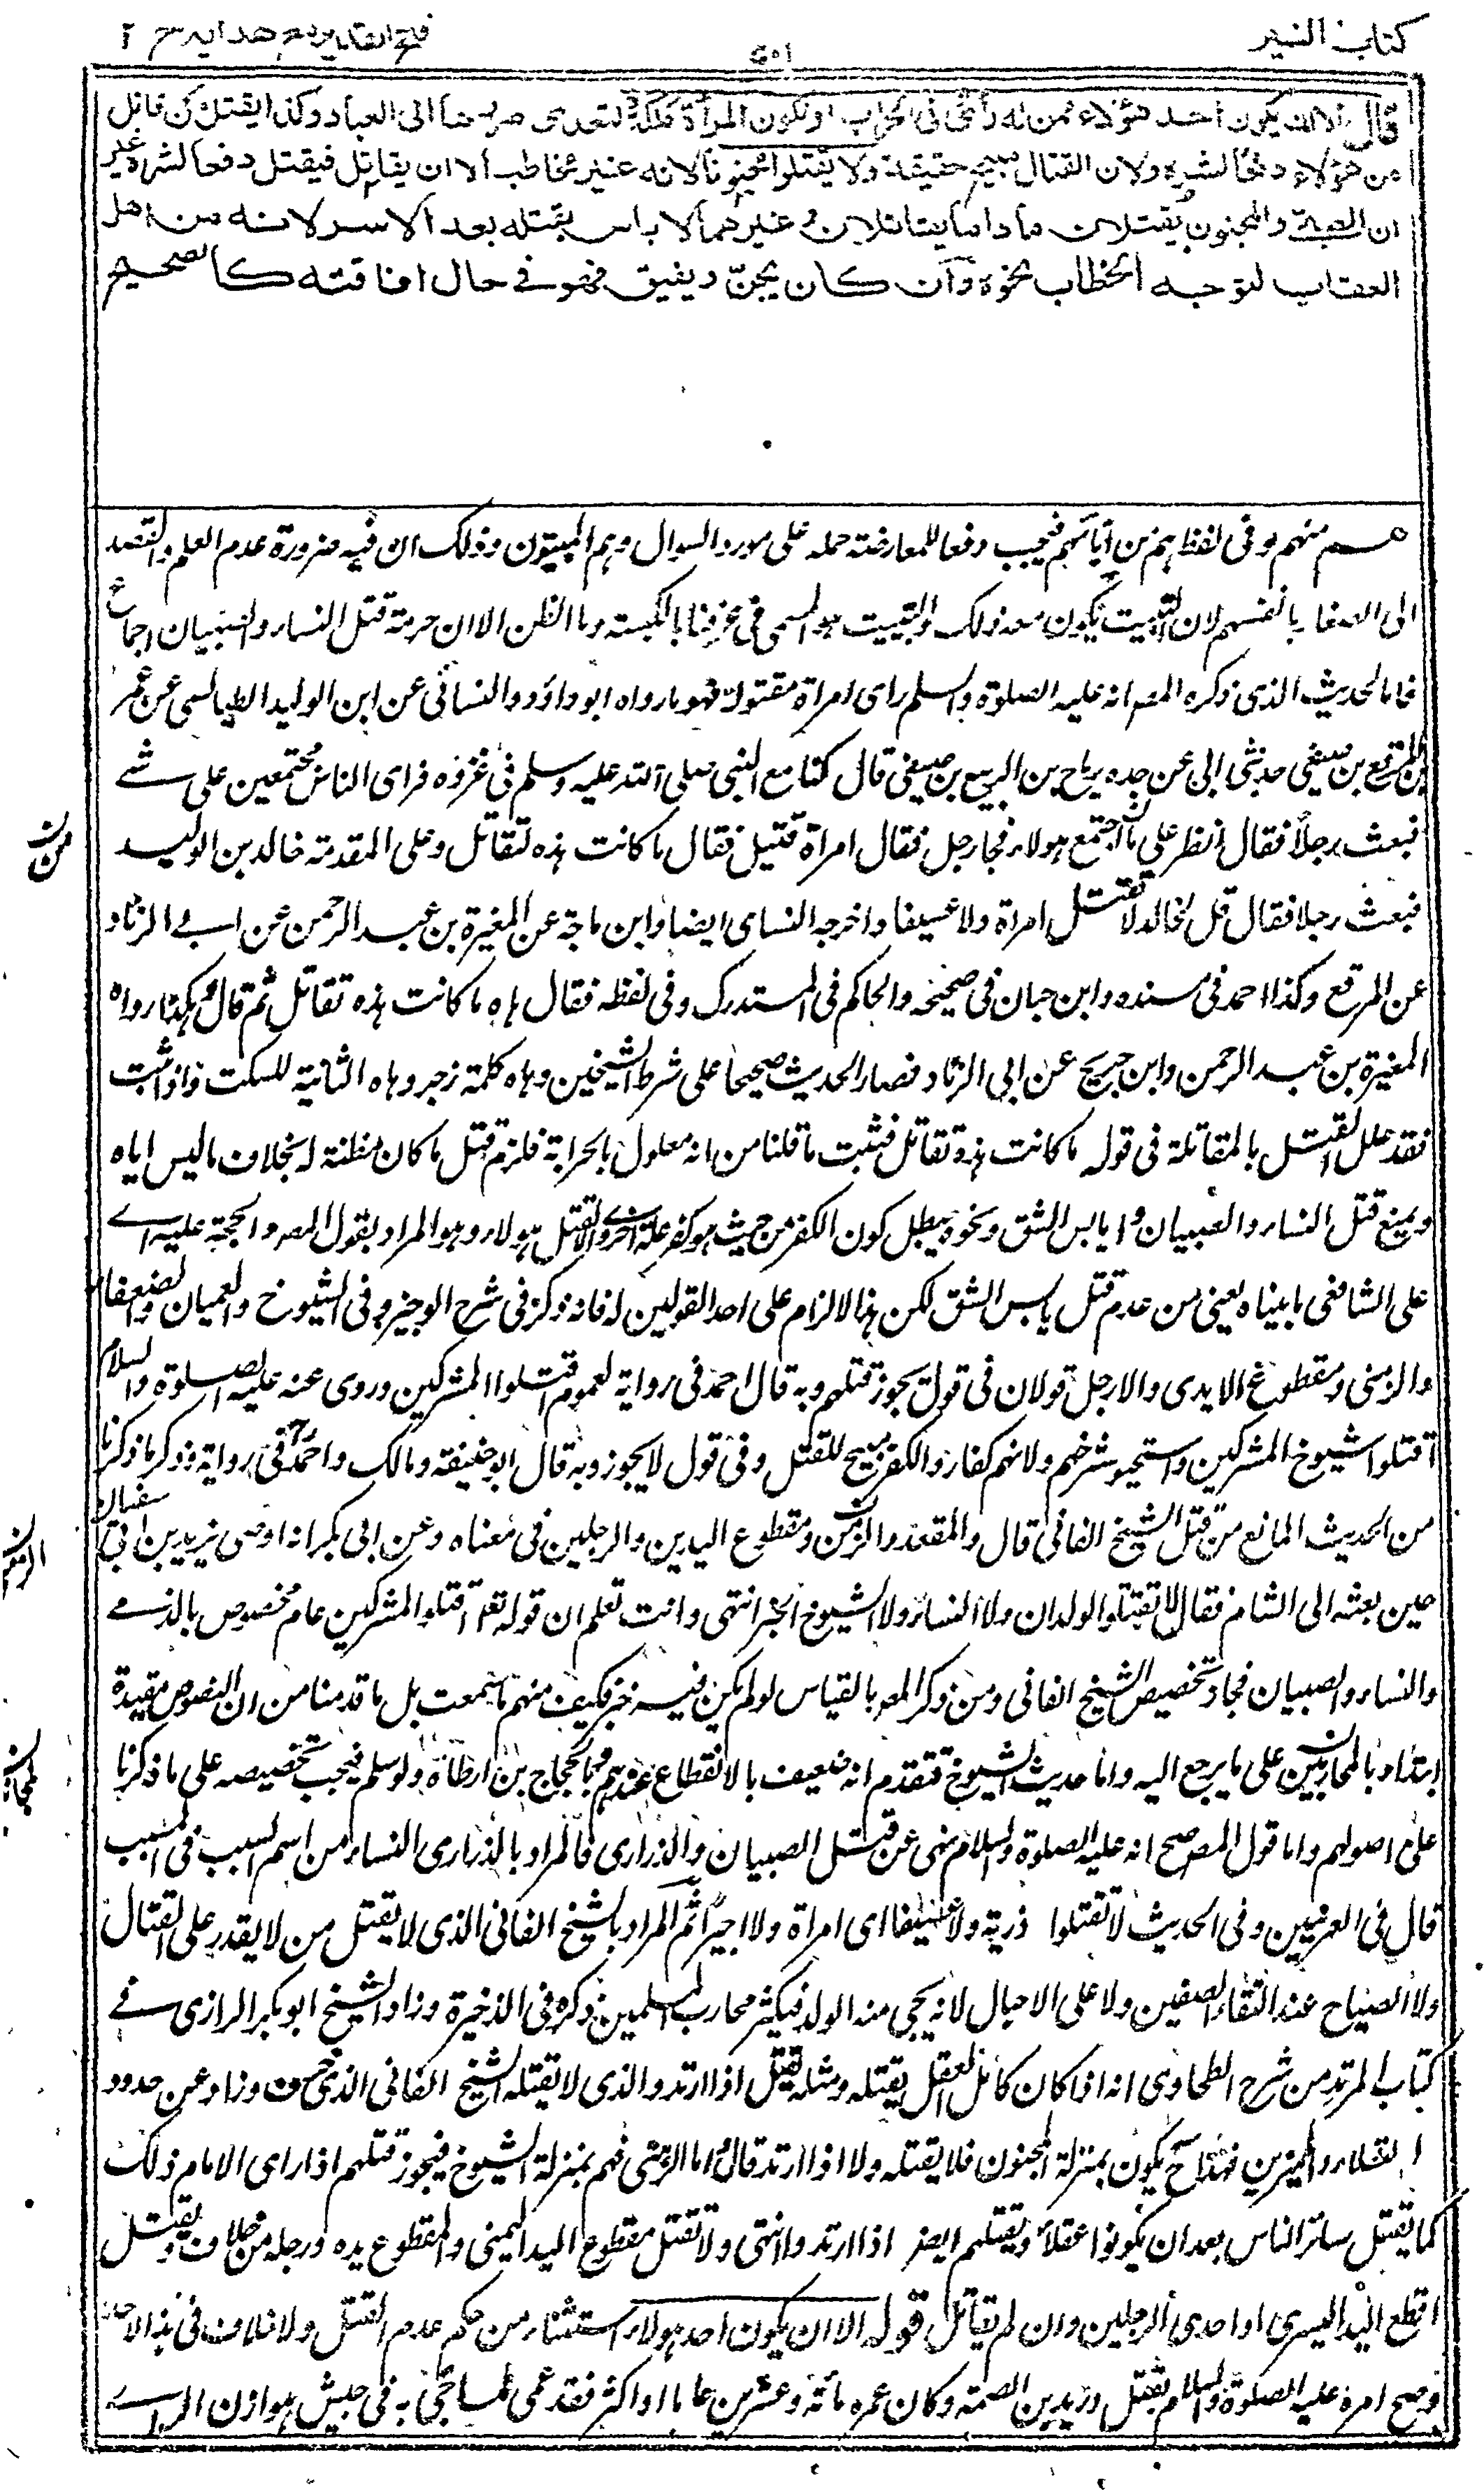 كتاب السير
فتح القدير مع هدايه ج ٢
قال الا ان يكون احد هؤلاء ممن له رأى فى الحرب او تكون المرأة ملكة لتعدى ضررها الى العباد وكذا يقتل من قاتل
من هؤلاء دفعا لشره ولان القتال مبيح حقيقة ولا يقتلوا مجنونا لانه غير مخاطب الا ان يقاتل فيقتل دفعا لشره غير
ان الصبى والمجنون يقتلان ما داما يقاتلان وغيرهما لا باس بقتله بعد الاسر لانه من اهل
العقاب لتوجه الخطاب نحوه وان كان يجنّ ويفيق فهو فى حال افاقته كالصحيح
هم منهم وفى لفظ هم من آبائهم فيجب دفعا للمعارضة حمله على مورد السوال وهم المبيتون وذلك ان فيه ضرورة عدم العلم والقصد
الى الصغار بانفسهم لان التبييت يكون معه ذلك والتبييت هو المسمى فى عرفنا بالكبسة وما الظن الا ان حرمة قتل النساء والصبيان اجماع
فاما الحديث الذى ذكره المصـ انه عليه الصلوة والسلم راى امراة مقتولة فهو ما رواه ابو داؤد والنسائى عن ابن الوليد الطيالسى عن عمر
بن المرقع بن صيفى حدثنى ابى عن جده رباح بن الربيع بن صيفى قال كنا مع النبى صلى الله عليه وسلم فى غزوه فراى الناس مجتمعين على شے
فبعث رجلاً فقال انظر على ما اجتمع هولاء فجاء رجل فقال امراة قتيل فقال ما كانت هذه لتقاتل وعلى المقدمة خالد بن الوليد
فبعث رجلا فقال قل لخالد لا تقتل امراة ولا عسيفا واخرجه النساى ايضا وابن ماجة عن المغيرة بن عبد الرحمن عن ابے الزناد
عن المرقع وكذا احمد فى مسنده وابن حبان فى صحيحه والحاكم فى المستدرك وفى لفظه فقال هاه ما كانت هذه تقاتل ثم قال وهكذا رواه
المغيرة بن عبد الرحمن وابن جريج عن ابى الزناد فصار الحديث صحيحا على شرط الشيخين وهاه كلمة زجر وهاه الثانية للسكت واذا ثبت
فقد علل القتل بالمقاتلة فى قوله ما كانت هذه تقاتل فثبت ما قلنا من انه معلول بالحرابة فلزم قتل ما كان مظنة له بخلاف ما ليس اياه
ويمنع قتل النساء والصبيان ويابس الشق ونحوه يبطل كون الكفر من حيث هو كفر علة اخرى والا لقتل هولاء وهو المراد بقول المصـ والحجة عليه اے
على الشافعى ما بيناه يعنى من عدم قتل يابس الشق لكن هذا الالزام على احد القولين له فانه ذكر فى شرح الوجيز وفى الشيوخ والعميان والضعفاء
والزمنى ومقطوع الايدى والارجل قولان فى قول يجوز قتلهم وبه قال احمد فى رواية لعموم اقتلوا المشركين وروى عنه عليه الصلوة والسلام
اقتلوا شيوخ المشركين واستحيوا شرخهم ولانهم كفار والكفر مبيح للقتل وفى قول لا يجوز وبه قال ابو حنيفة ومالك واحمد فى رواية وذكر ما ذكرنا
من الحديث المانع من قتل الشيخ الفانى قال والمقعد والزمن ومقطوع اليدين والرجلين فى معناه وعن ابى بكر انه اوصى يزيد بن ابى سفيان
حين بعثه الى الشام فقال لا تقتلوا الولدان ولا النساء ولا الشيوخ الخبر انتهى وانت تعلم ان قوله تعا اقتلوا المشركين عام مخصوص بالذمے
والنساء والصبيان فجاز تخصيص الشيخ الفانى ومن ذكر المصـ بالقياس لو لم يكن فيه خبر فكيف منهم ما سمعت بل ما قدمنا من ان النصوص مقيدة
ابتداء بالمحاربين على ما يرجع اليه واما حديث الشيوخ فتقدم انه ضعيف بالانقطاع عندهم وبالحجاج بن ارطاة ولو سلم فيجب تخصيصه على ما ذكرنا
على اصولهم واما قول المصـ صح انه عليه الصلوة والسلام نهى عن قتل الصبيان والذرارى فالمراد بالذرارى النساء من اسم السبب فى المسبب
قال فى الغريبين وفى الحديث لا تقتلوا ذرية ولا عسيفا اى امراة ولا اجيرا ثم المراد بالشيخ الفانى الذى لا يقتل من لا يقدر على القتال
ولا الصياح عند التقاء الصفين ولا على الاحبال لانه يجئ منه الولد فيكثر محارب المسلمين ذكره فى الذخيرة وزاد الشيخ ابو بكر الرازى فے
كتاب المرتد من شرح الطحاوى انه اذا كان كامل العقل يقتله ومثله يقتل اذا ارتد والذى لا يقتله الشيخ الفانى الذى خرف وزاد عن حدود
العقلاء والمميزين فهذا ح يكون بمنزلة المجنون فلا يقتله ولا اذا ارتد قال واما الزمنى فهم بمنزلة الشيوخ فيجوز قتلهم اذا راى الامام ذلك
كما يقتل سائر الناس بعد ان يكونوا عقلاء ويقتلهم ايضـ اذا ارتدوا انتهى ولا تقتل مقطوع اليد اليمنى والمقطوع يده ورجله من خلاف ويقتل
اقطع اليد اليسرى او احدى الرجلين وان لم يقاتل قوله الا ان يكون احد هولاء استثناء من حكم عدم القتل ولا خلاف فى هذا لاحد
وصح امره عليه الصلوة والسلام بقتل دريد بن الصمة وكان عمره مائة وعشرين عاما او اكثر فقد عمى لما جئ به فى جيش هوازن للراے